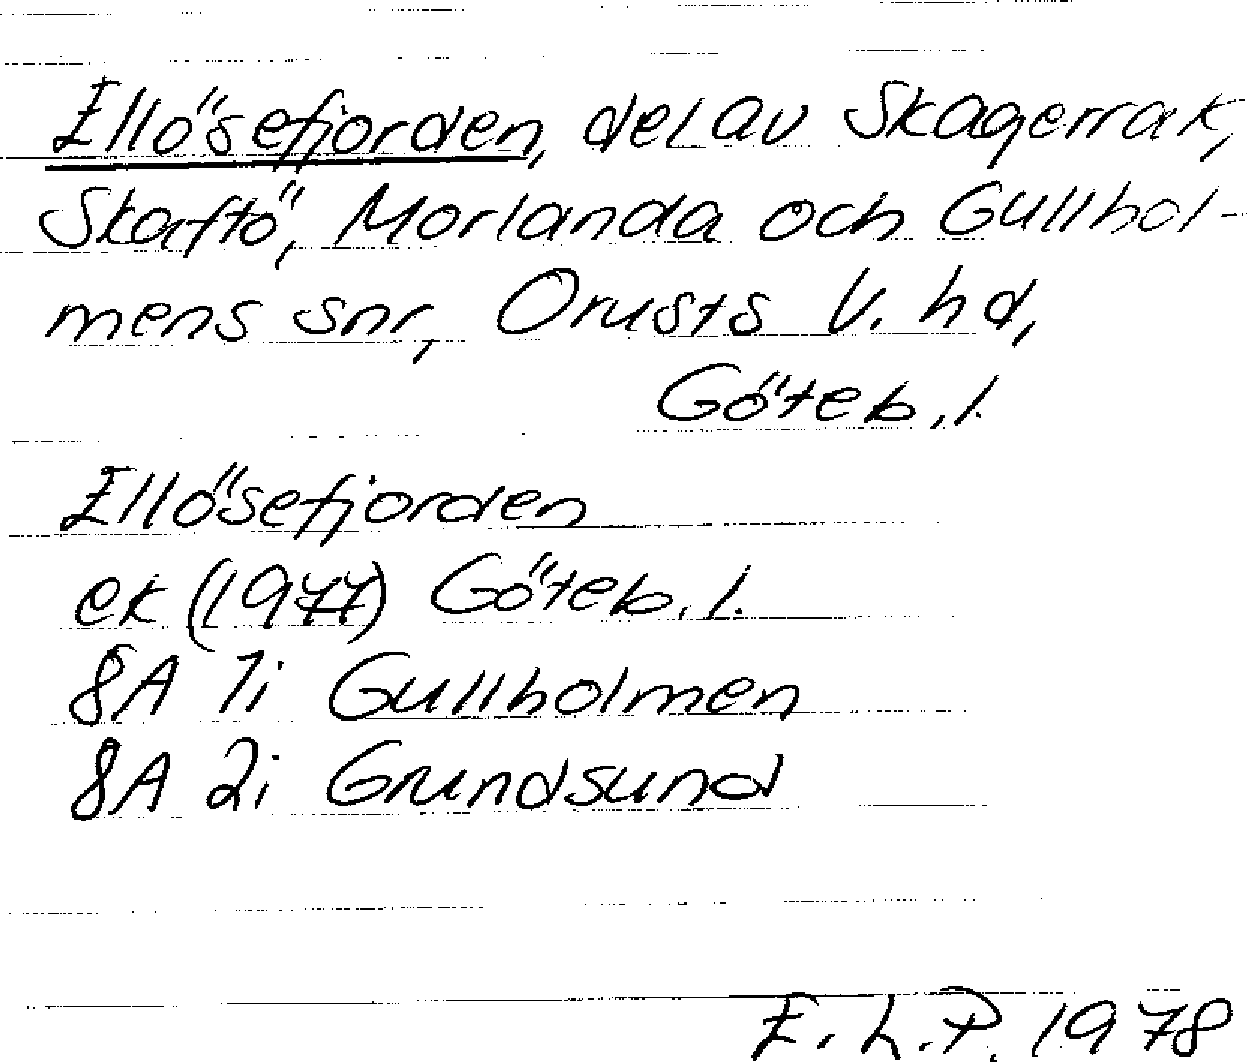 Ellösefjorden, del av Skagerrak,
Skaftö, Morlanda och Gullhol-
mens snr, Orusts V. hd,
Göteb. l.
Ellösefjorden
ek (1977) Göteb. l.
8A 1i Gullholmen
8A 2i Grundsund
E. L. P. 1978